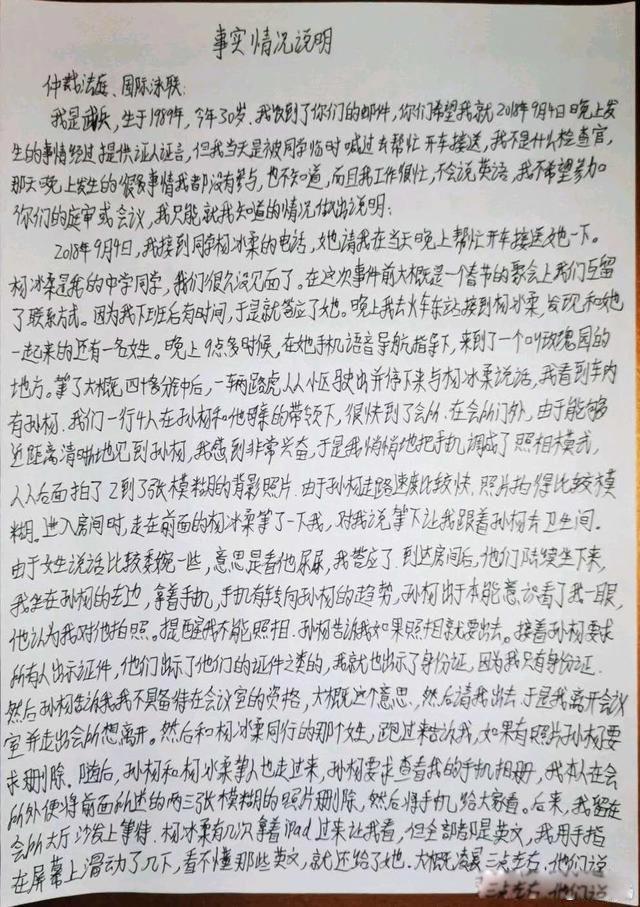 事实情况说明
仲裁法庭、国际泳联:
我是武兵,生于1989年,今年30岁.我收到了你们的邮件,你们希望我就2018年9月4日晚上发
生的事情经过提供证人证言,但我当天是被同学临时喊过去帮忙开车接送,我不是什么检查官,
那天晚上发生的很多事情我都没有参与,也不知道,而且我工作很忙,不会说英语,我不希望参加
你们的庭审或会议,我只能就我知道的情况做出说明:
2018年9月4日,我接到同学杨冰柔的电话,她请我在当天晚上帮忙开车接送她一下。
杨冰柔是我的中学同学,我们很久没见面了。在这次事件前大概是一个春节的聚会上我们互留
了联系方式。因为我下班后有时间,于是就答应了她。晚上我去火车东站接到杨冰柔,发现和她
一起来的还有一名女生。晚上9点多时候,在她手机语音导航指导下,来到了一个叫玫瑰园的
地方。等了大概四十多分钟后,一辆路虎从小区驶出并停下来与杨冰柔说话,我看到车内
有孙杨.我们一行4人在孙杨和他母亲的带领下,很快到了会所.在会所门外,由于能够
近距离清晰地见到孙杨,我感到非常兴奋,于是我悄悄地把手机调成了照相模式,
从后面拍了2到了3张模糊的背影照片.由于孙杨走路速度比较快.照片拍得比较模
糊.进入房间时,走在前面的杨冰柔等了一下我,对我说等下让我跟着孙杨去卫生间.
由于女生说话比较委婉一些,意思是看他尿尿,我答应了.到达房间后,他们陆续坐下来,
我坐在孙杨的左边,拿着手机,手机有转向孙杨的趋势,孙杨出于本能意识看了我一眼,
他认为我对他拍照.提醒我不能照相.孙杨告诉我如果照相就要出去.接着孙杨要求
所有人出示证件,他们出示了他们的证件之类的,我就也出示了身份证,因为我只有身份证.
然后孙杨告诉我我不具备待在会议室的资格,大概这个意思,然后请我出去.于是我离开会议
室并走出会所想离开。然后和杨冰柔同行的那个女生,跑过来告诉我,如果有照片孙杨要
求删除.随后,孙杨和杨冰柔等人也走过来,孙杨要求查看我的手机相册,我本人在会
所外便将前面所述的两三张模糊的照片删除,然后将手机给大家看。后来,我留在
会所大厅沙发上等待.杨冰柔有几次拿着ipad过来让我看,但全部都是英文,我用手指
在屏幕上滑动了几下,看不懂那些英文,就还给了她.大概凌晨三点左右.他们说
三点左右.他们说